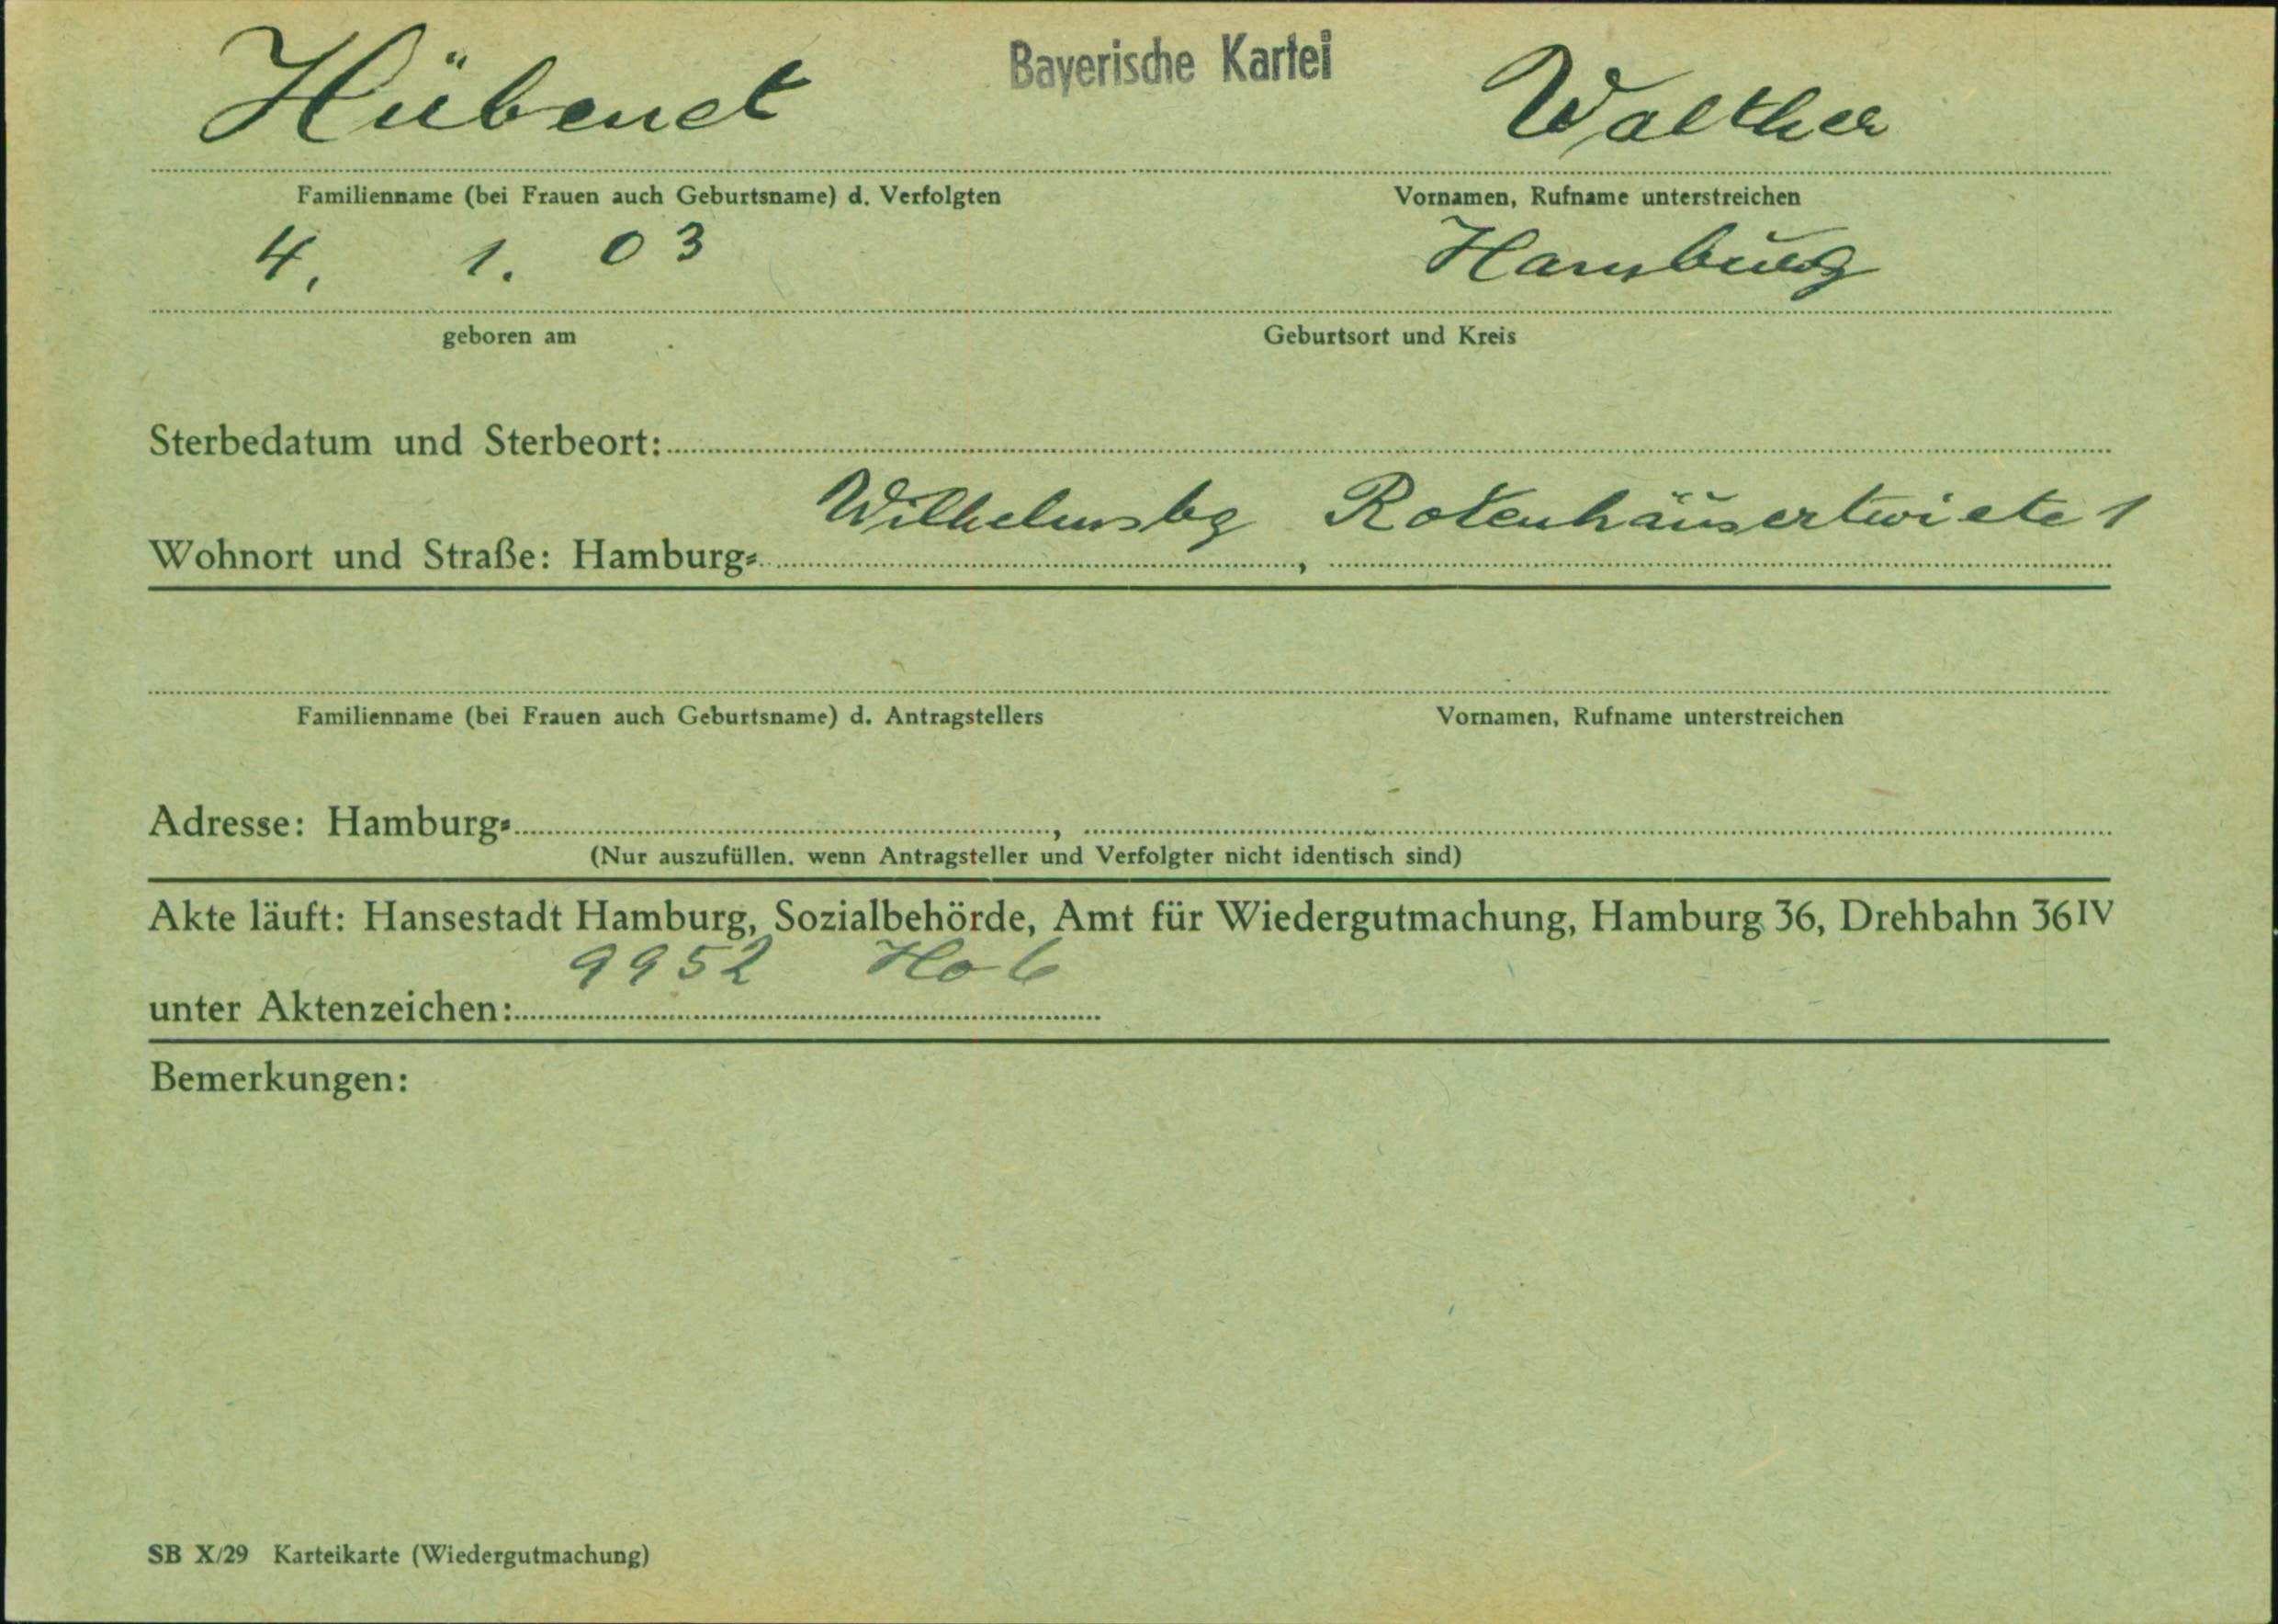 Bayerische Kartei
Hübenet Walther
Familienname (bei Frauen auch Geburtsname) d. Verfolgten Vornamen, Rufname unterstreichen
4. 1. 03 Hamburg
geboren am Geburtsort und Kreis
Sterbedatum und Sterbeort:
Wilhelmsbg Rotenhäusertwiete 1
Wohnort und Straße: Hamburg= ,
Familienname (bei Frauen auch Geburtsname) d. Antragstellers Vornamen, Rufname unterstreichen
Adresse: Hamburg= ,
(Nur auszufüllen. wenn Antragsteller und Verfolgter nicht identisch sind)
Akte läuft: Hansestadt Hamburg, Sozialbehörde, Amt für Wiedergutmachung, Hamburg 36, Drehbahn 36 IV
9952
unter Aktenzeichen:
Bemerkungen:
SB X/29 Karteikarte (Wiedergutmachung)